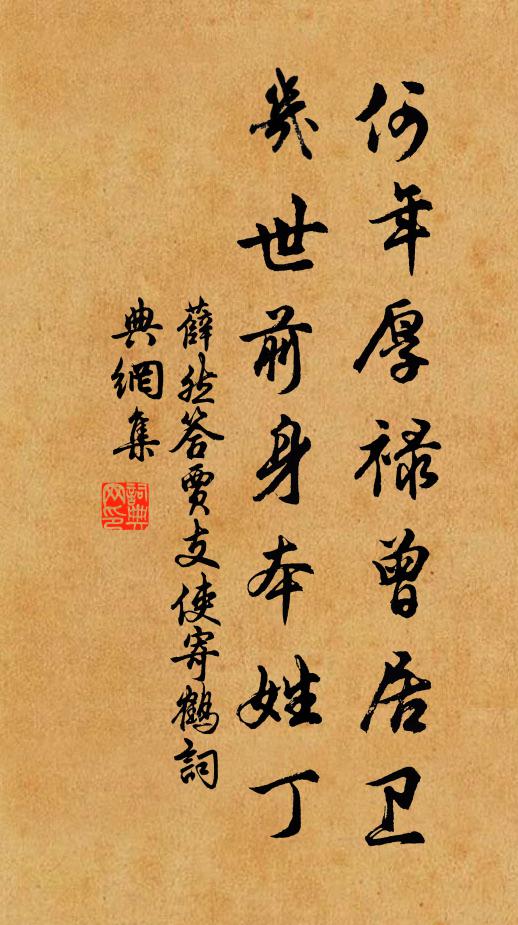 何年厚禄曾居卫
几世前身本姓丁
薛能答贾支使寄鹤词
典網集
詞典
网印